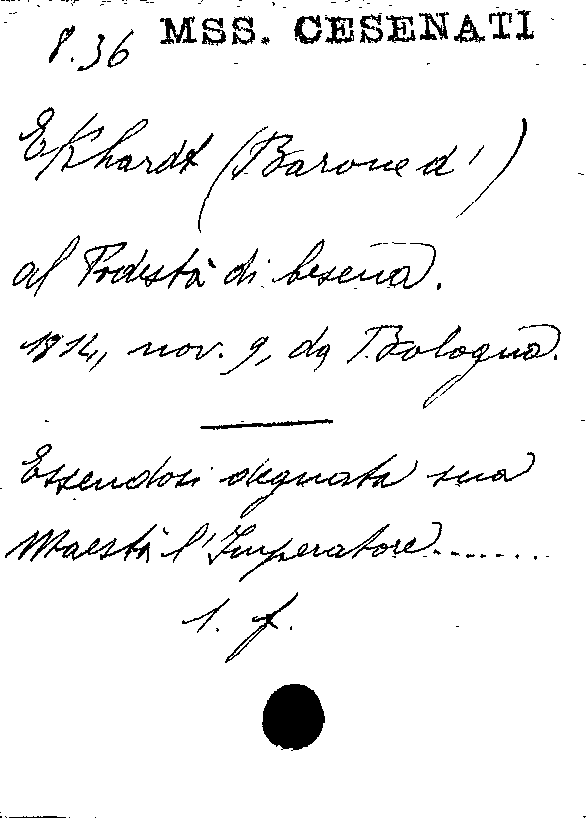 MSS. CESENATI
8.36
Ekhardt (Barone d')
al Podestà di Cesena.
1814, nov. 9, da Bologna.
Essendosi degnata sua
Maestà l'Imperatore.......
1. f.